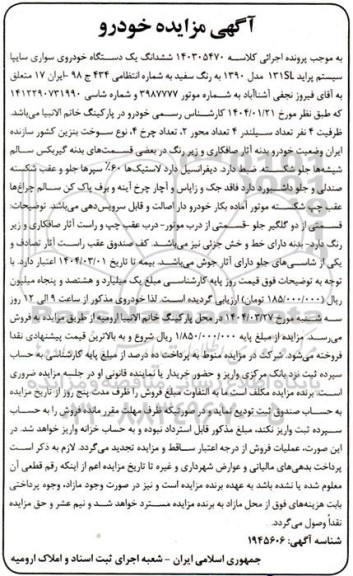 آگهی مزایده خودرو
به موجب پرونده اجرائی کلاسه ۱۴۰۳۰۵۴۷۰ ششدانگ یک دستگاه خودروی سواری سایپا
سیستم پراید ۱۳۱SL مدل ۱۳۹۰ به رنگ سفید به شماره انتظامی ۴۳۴ ج ۹۸ -ایران ۱۷ متعلق
به آقای فیروز نجفی آشناآباد به شماره موتور ۳۹۸۷۷۷۷ و شماره شاسی ۱۴۱۲۲۹۰۷۳۱۹۹۰
که طبق نظر مورخ ۱۴۰۴/۰۱/۲۱ کارشناس رسمی خودرو در پارکینگ خاتم الانبیا می‌باشد.
ظرفیت ۴ نفر تعداد سیلندر ۴ تعداد محور ۲، تعداد چرخ ۴، نوع سوخت بنزین کشور سازنده
ایران وضعیت خودرو بدنه آثار صافکاری و زیر رنگ در بعضی قسمت‌های بدنه گیربکس سالم
شیشه‌ها جلو شکسته ضبط دارد. دیفرانسیل دارد لاستیک‌ها ۶۰٪ سپرها جلو و عقب شکسته
صندلی و جلو داشبورد دارد فاقد جک و زاپاس و آچار چرخ آینه و برف پاک کن سالم چراغ‌ها
عقب چپ شکسته موتور آماده بکار خودرو دار اصالت و قابل سرویس‌دهی می‌باشد. توضیحات:
قسمتی از دو گلگیر جلو -قسمتی از درب موتور- درب عقب چپ و راست آثار صافکاری و زیر
رنگ دارد- بدنه دارای خط و خش جزئی نیز می‌باشد. کف صندوق عقب راست آثار تصادف و
یکی از شاسی‌های جلو دارای آثار جوش می‌باشد. بیمه تا تاریخ ۱۴۰۴/۰۳/۰۱ اعتبار دارد. با
توجه به توضیحات فوق قیمت روز پایه کارشناسی مبلغ یک میلیارد و هشتصد و پنجاه میلیون
ریال (۱۸۵/۰۰۰/۰۰۰ تومان) ارزیابی گردیده است. لذا خودروی مذکور از ساعت ۹ الی ۱۲ روز
سه شنبه مورخ ۱۴۰۴/۰۳/۲۷ در محل پارکینگ خاتم الانبیا ارومیه از طریق مزایده به فروش
می‌رسد. مزایده از مبلغ پایه ۱/۸۵۰/۰۰۰/۰۰۰ ریال شروع و به بالاترین قیمت پیشنهادی نقدا
فروخته می‌شود. شرکت در مزایده منوط به پرداخت ده درصد از مبلغ پایه کارشناسی به حساب
سپرده ثبت نزد بانک مرکزی واریز و حضور خریدار یا نماینده قانونی او در جلسه مزایده ضروری
است. برنده مزایده مکلف است ما به التفاوت مبلغ فروش را ظرف مدت پنج روز از تاریخ مزایده
به حساب صندوق ثبت تودیع نماید و در صورتیکه ظرف مهلت مقرر مانده فروش را به حساب
سپرده ثبت واریز نکند، مبلغ مذکور قابل استرداد نبوده و به حساب خزانه واریز خواهد شد. در
این صورت، عملیات فروش از درجه اعتبار ساقط و مزایده تجدید می‌گردد. لازم به ذکر است
پرداخت بدهی‌های مالیاتی و عوارض شهرداری و غیره تا تاریخ مزایده اعم از اینکه رقم قطعی آن
معلوم شده یا نشده باشد به عهده برنده مزایده است و نیز در صورت وجود مازاد، وجوه پرداختی
بابت هزینه‌های فوق از محل مازاد به برنده مزایده مسترد خواهد شد و نیم عشر و حق مزایده
نقداً وصول می‌گردد.
شناسه آگهی: ۱۹۴۵۶۰۶
جمهوری اسلامی ایران - شعبه اجرای ثبت اسناد و املاک ارومیه